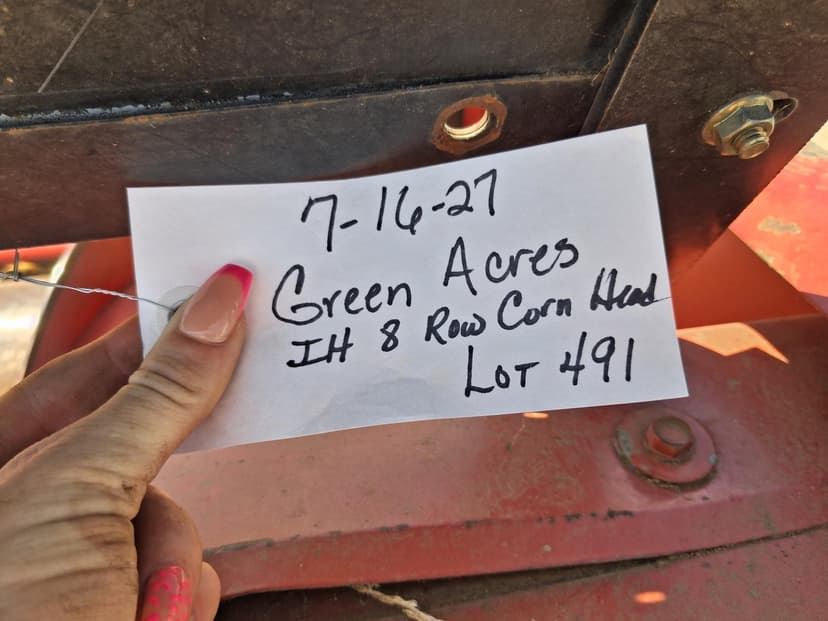 7-16-27
Green Acres
IH 8 Row Corn Head
Lot 491